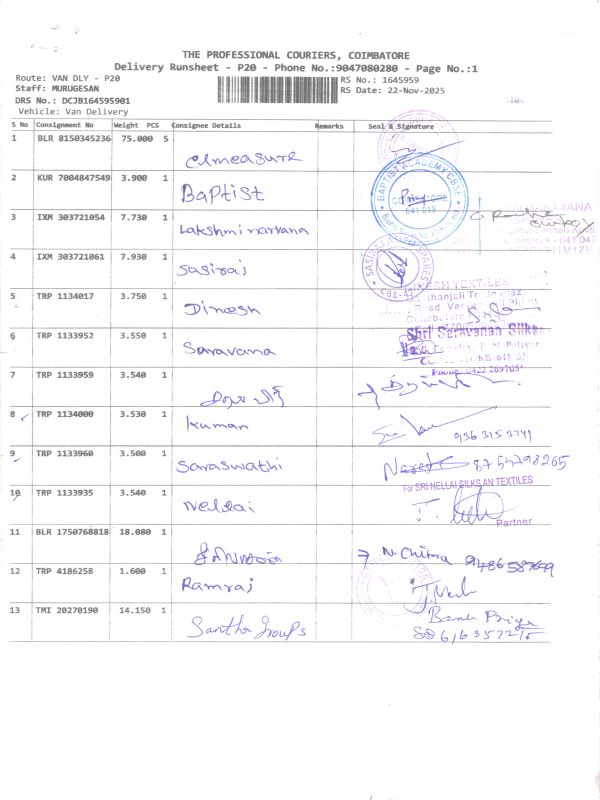 THE PROFESSIONAL COURIERS, COIMBATORE
Delivery Runsheet - P20 - Phone No.:9047080280 - Page No.:1
Route: VAN DLY - P20
Staff: MURUGESAN
DRS No.: DCJB164595901
Vehicle: Van Delivery
RS No.: 1645959
RS Date: 22-Nov-2025
S No Consignment No Weight PCS Consignee Details Remarks Seal & Signature
1 BLR 8150345236 75.000 5 elmeasure
2 KUR 7004847549 3.900 1 Baptist
BAPTIST ACADEMY CBSE
641 018
3 IXM 303721054 7.730 1 Lakshmi naryana
4 IXM 303721061 7.930 1 Sasiraj
5 TRP 1134017 3.750 1 Dinesh
6 TRP 1133952 3.550 1 Saravana
Shri Saravanan Silks
7 TRP 1133959 3.540 1
8 TRP 1134000 3.530 1 Kuman
9363153741
9 TRP 1133960 3.500 1 Saraswathi
Naresh 8754798265
10 TRP 1133935 3.540 1 Nellai
For SRI NELLAI SILKS AN TEXTILES
Partner
11 BLR 1750768818 18.080 1
N. Chitra
12 TRP 4186258 1.600 1 Ramraj
13 TMI 20270190 14.150 1 Santha Groups